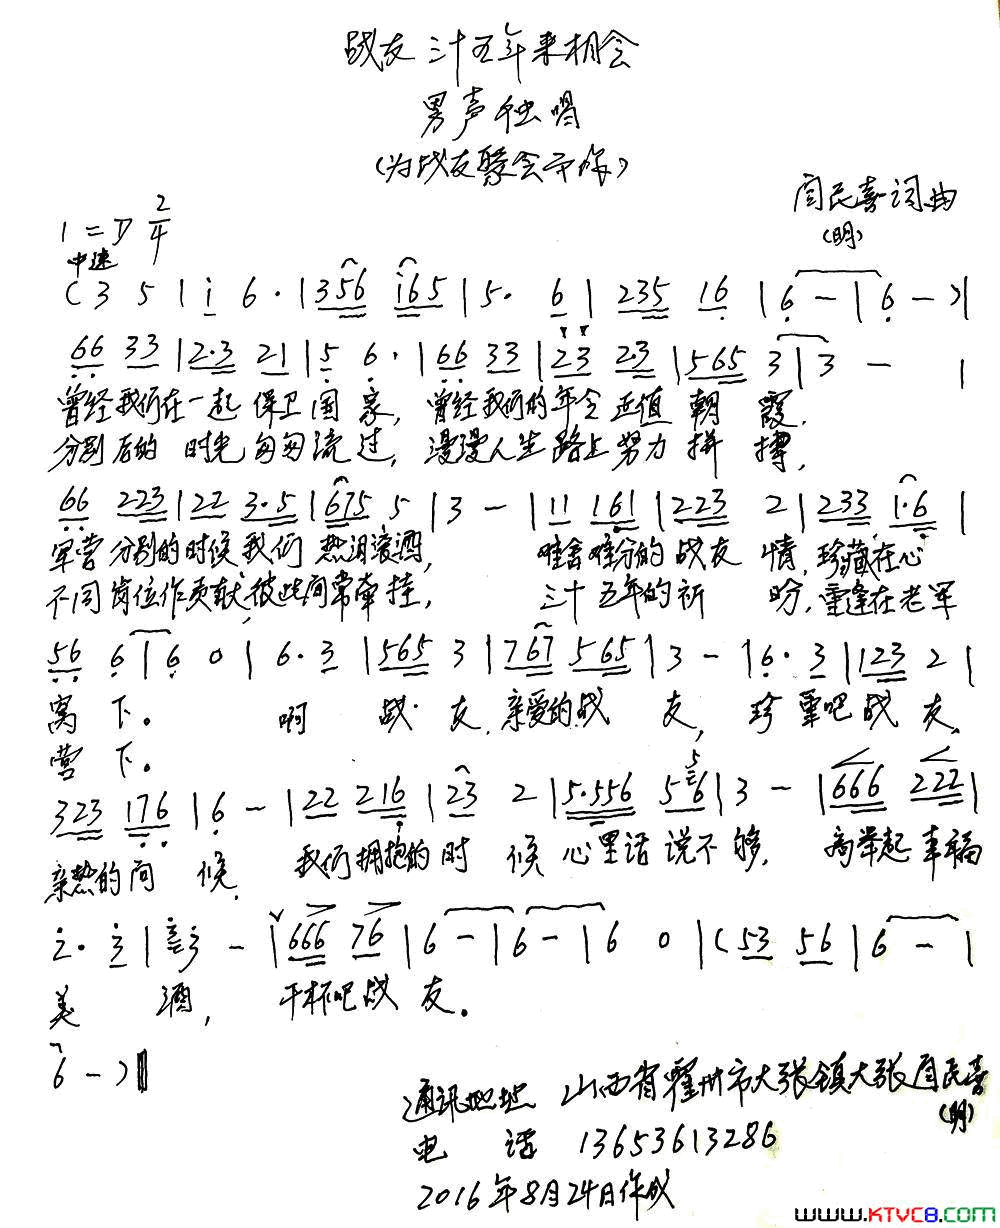 战友三十五年来相会
男声独唱
(为战友聚会而作)
闫民喜词曲
(明)
1=D 2/4
中速
(3 5 | i 6· | 356 i65 | 5· 6 | 235 16 | 6 - | 6 - ) |
66 33 | 2·3 21 | 5 6· | 66 33 | 23 2·3 | 565 3 | 3 - |
曾经我们在一起保卫国家,曾经我们的年令正值朝霞.
分别后的时光匆匆流过,漫漫人生路上努力拼搏,
66 223 | 22 3·5 | 675 5 | 3 - | 11 161 | 223 2 | 233 1·6 |
军营分别的时候我们热泪滚洒,难舍难分的战友情,珍藏在心
不同岗位作贡献,彼此间常牵挂,三十五年的祈盼,重逢在老军
56 6 | 6 0 | 6·3 | 565 3 | 767 565 | 3 - | 6·3 | 123 2 |
窝下。啊战友.亲爱的战友,珍重吧战友.
营下。
323 176 | 6 - | 22 216 | 23 2 | 5·556 5 5 6 | 3 - | 666 222 |
亲热的问候.我们拥抱的时候心里话说不够.高举起幸福
2· 3 | 3 - | 666 76 | 6 - | 6 - | 6 0 | (53 56 | 6 - |
美酒,干杯吧战友。
6 - ) ‖
通讯地址 山西省霍州市大张镇大张闫民喜
(明)
电话 13653613286
2016年8月24日作成
WWW.KTVC8.COM